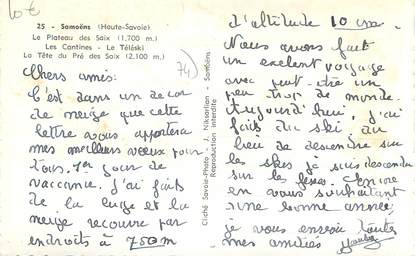 lot
25 - Samoëns (Haute-Savoie)
Le Plateau des Saix (1.700 m.)
Les Cantines - Le Téléski
La Tête du Pré des Saix (2.100 m.)
74)
Chers amis:
C'est dans un decor
de neige que cette
lettre vous apportera
mes meilleurs voeux pour
tous. 1er jour de
vaccance. j'ai fait
de la luge et la
neige recouvre par
endroits à 750m
Cliché Savoie-Photo - J. Niksarlian - Samoëns
Reproduction interdite
d'altitude 10 cm.
Nous avons fait
un exelent voyage
avec peut-être un
peu trop de monde.
Aujourd'hui, j'ai
fait du ski au
lieu de descendre sur
les skis je suis descendu
sur les fesses. Encore
en vous souhaitant
une bonne année
je vous envoie toutes
mes amitiés